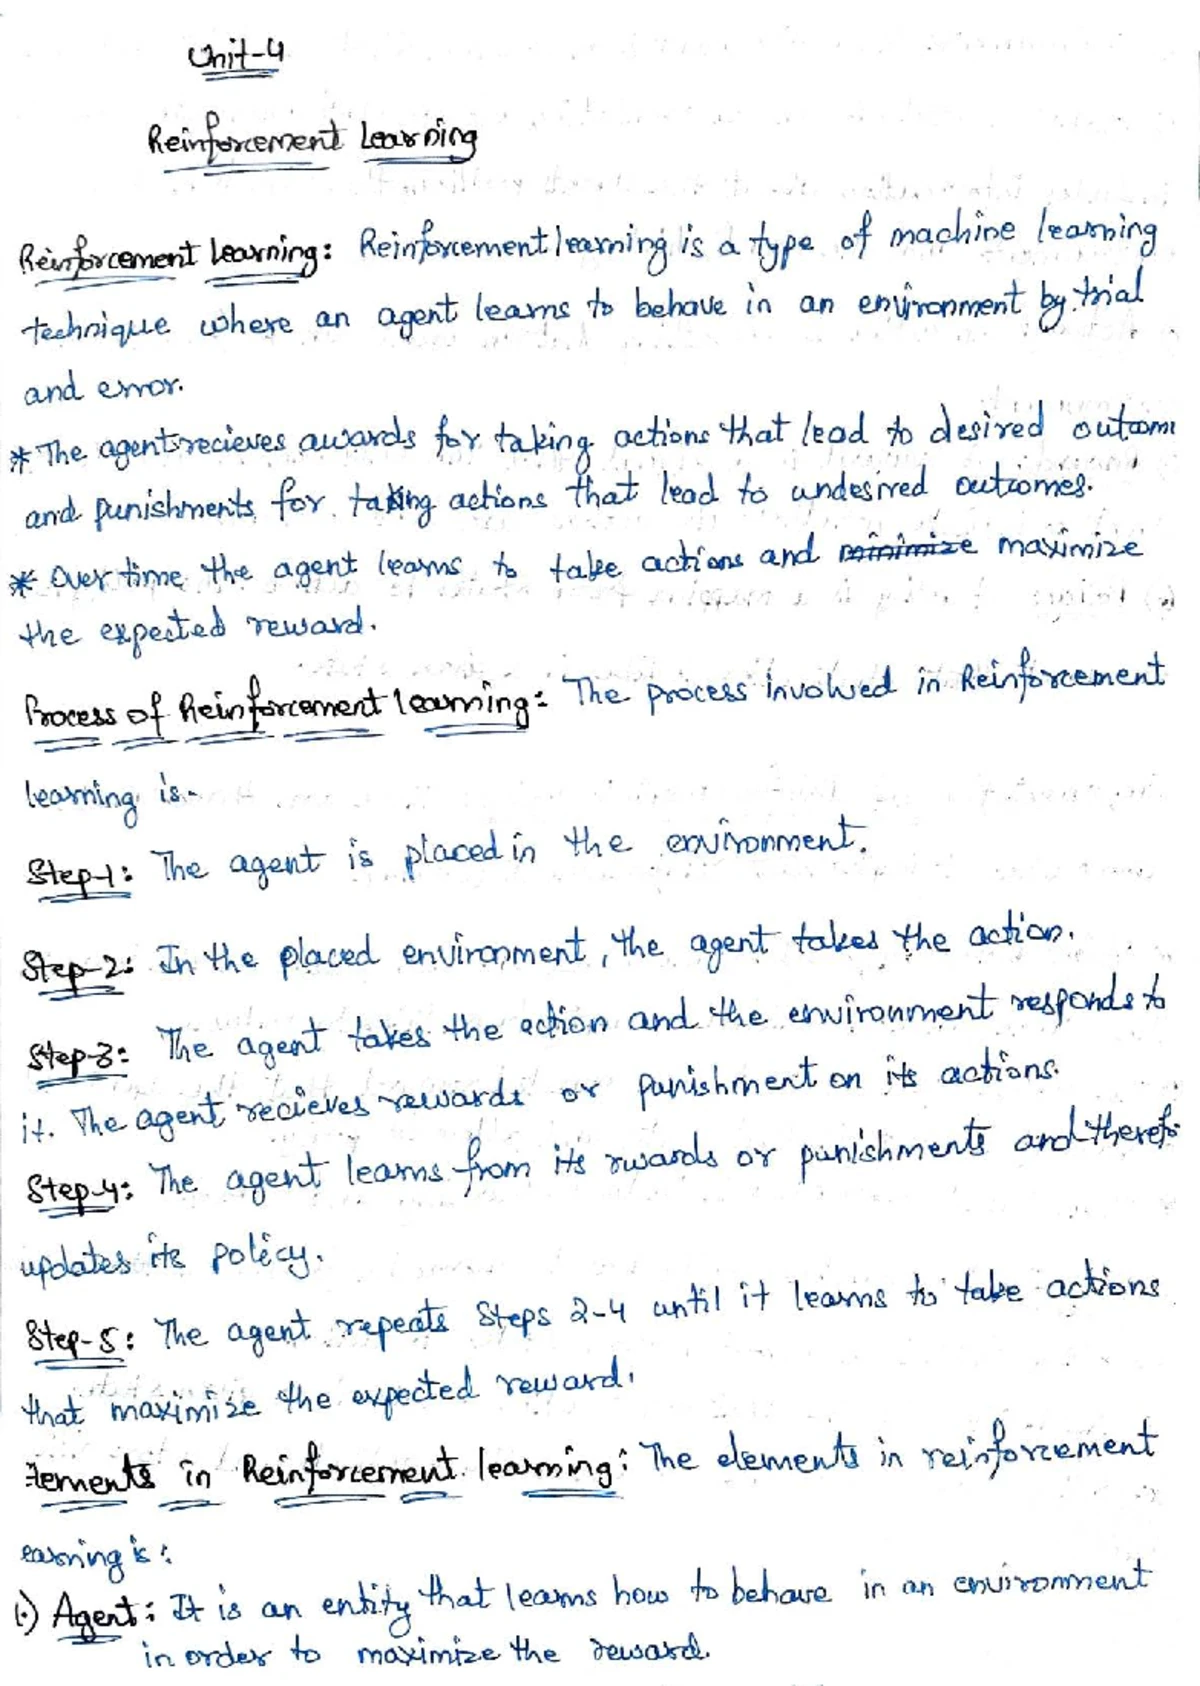 Unit-4
Reinforcement Learning
Reinforcement Learning: Reinforcement learning is a type of machine learning
technique where an agent learns to behave in an environment by trial
and error.
* The agent recieves awards for taking actions that lead to desired outcome
and punishments for taking actions that lead to undesired outcomes.
* Over time the agent learns to take actions and minimize maximize
the expected reward.
Process of Reinforcement learning: The process involved in Reinforcement
learning is-
Step-1: The agent is placed in the environment.
Step-2: In the placed environment, the agent takes the action.
Step-3: The agent takes the action and the environment responds to
it. The agent recieves rewards or punishment on its actions.
Step-4: The agent learns from its rwards or punishments and therefo
updates its policy.
Step-5: The agent repeats Steps 2-4 until it learns to take actions
that maximise the expected reward.
lements in Reinforcement learning: The elements in reinforcement
earning is:
1.) Agent: It is an entity that learns how to behave in an environment
in order to maximize the reward.